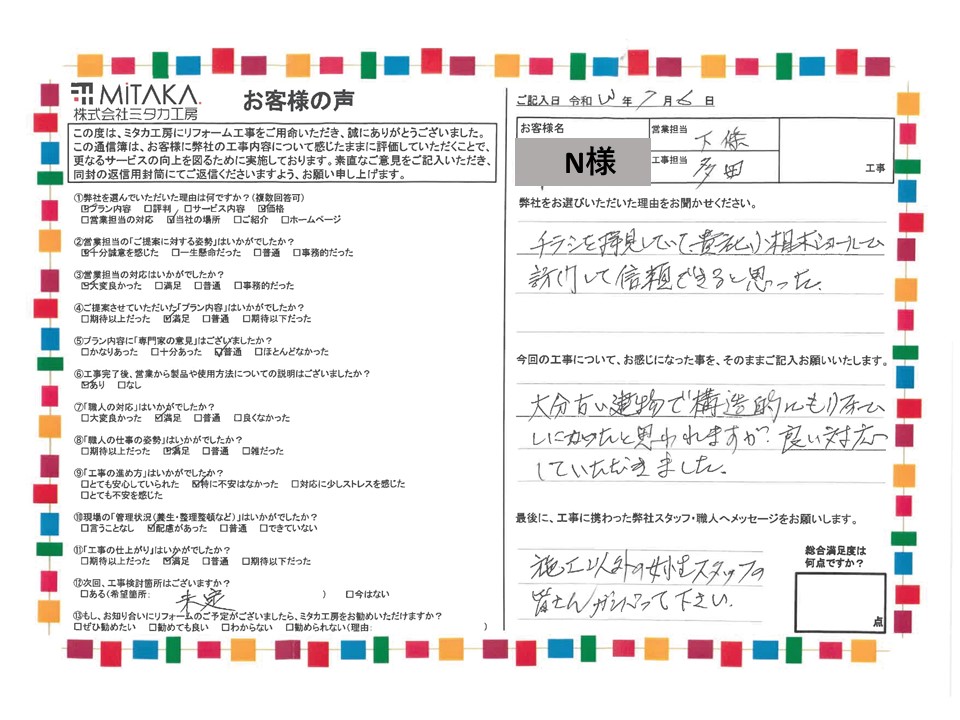 MiTAKA.
株式会社ミタカ工房
お客様の声
この度は、ミタカ工房にリフォーム工事をご用命いただき、誠にありがとうございました。
この通信簿は、お客様に弊社の工事内容について感じたままに評価していただくことで、
更なるサービスの向上を図るために実施しております。素直なご意見をご記入いただき、
同封の返信用封筒にてご返信くださいますよう、お願い申し上げます。
①弊社を選んでいただいた理由は何ですか?(複数回答可)
☑プラン内容 □評判 □サービス内容 ☑価格
□営業担当の対応 ☑当社の場所 □ご紹介 □ホームページ
②営業担当の「ご提案に対する姿勢」はいかがでしたか?
☑十分誠意を感じた □一生懸命だった □普通 □事務的だった
③営業担当の対応はいかがでしたか?
☑大変良かった □満足 □普通 □事務的だった
④ご提案させていただいた「プラン内容」はいかがでしたか?
□期待以上だった ☑満足 □普通 □期待以下だった
⑤プラン内容に「専門家の意見」はございましたか?
□かなりあった □十分あった ☑普通 □ほとんどなかった
⑥工事完了後、営業から製品や使用方法についての説明はございましたか?
☑あり □なし
⑦「職人の対応」はいかがでしたか?
□大変良かった ☑満足 □普通 □良くなかった
⑧「職人の仕事の姿勢」はいかがでしたか?
□期待以上だった ☑満足 □普通 □雑だった
⑨「工事の進め方」はいかがでしたか?
□とても安心していられた ☑特に不安はなかった □対応に少しストレスを感じた
□とても不安を感じた
⑩現場の「管理状況(養生・整理整頓など)」はいかがでしたか?
□言うことなし ☑配慮があった □普通 □できていない
⑪「工事の仕上がり」はいかがでしたか?
□期待以上だった ☑満足 □普通 □期待以下だった
⑫次回、工事検討箇所はございますか?
□ある(希望箇所: 未定 ) □今はない
⑬もし、お知り合いにリフォームのご予定がございましたら、ミタカ工房をお勧めいただけますか?
□ぜひ勧めたい □勧めても良い □わからない □勧められない(理由: )
ご記入日 令和 年 7 月 6 日
お客様名
N様
営業担当 下條
工事担当 多田
工事
弊社をお選びいただいた理由をお聞かせください。
チラシを拝見していて、貴社より 相木ショールーム
訪問して信頼できると思った.
今回の工事について、お感じになった事を、そのままご記入お願いいたします。
大分古い建物で構造的にもリフォーム
しにくかったと思われますが、良い対応
していただきました.
最後に、工事に携わった弊社スタッフ・職人へメッセージをお願いします。
施工以外の女性スタッフの
皆さんがんばって下さい.
総合満足度は
何点ですか?
点